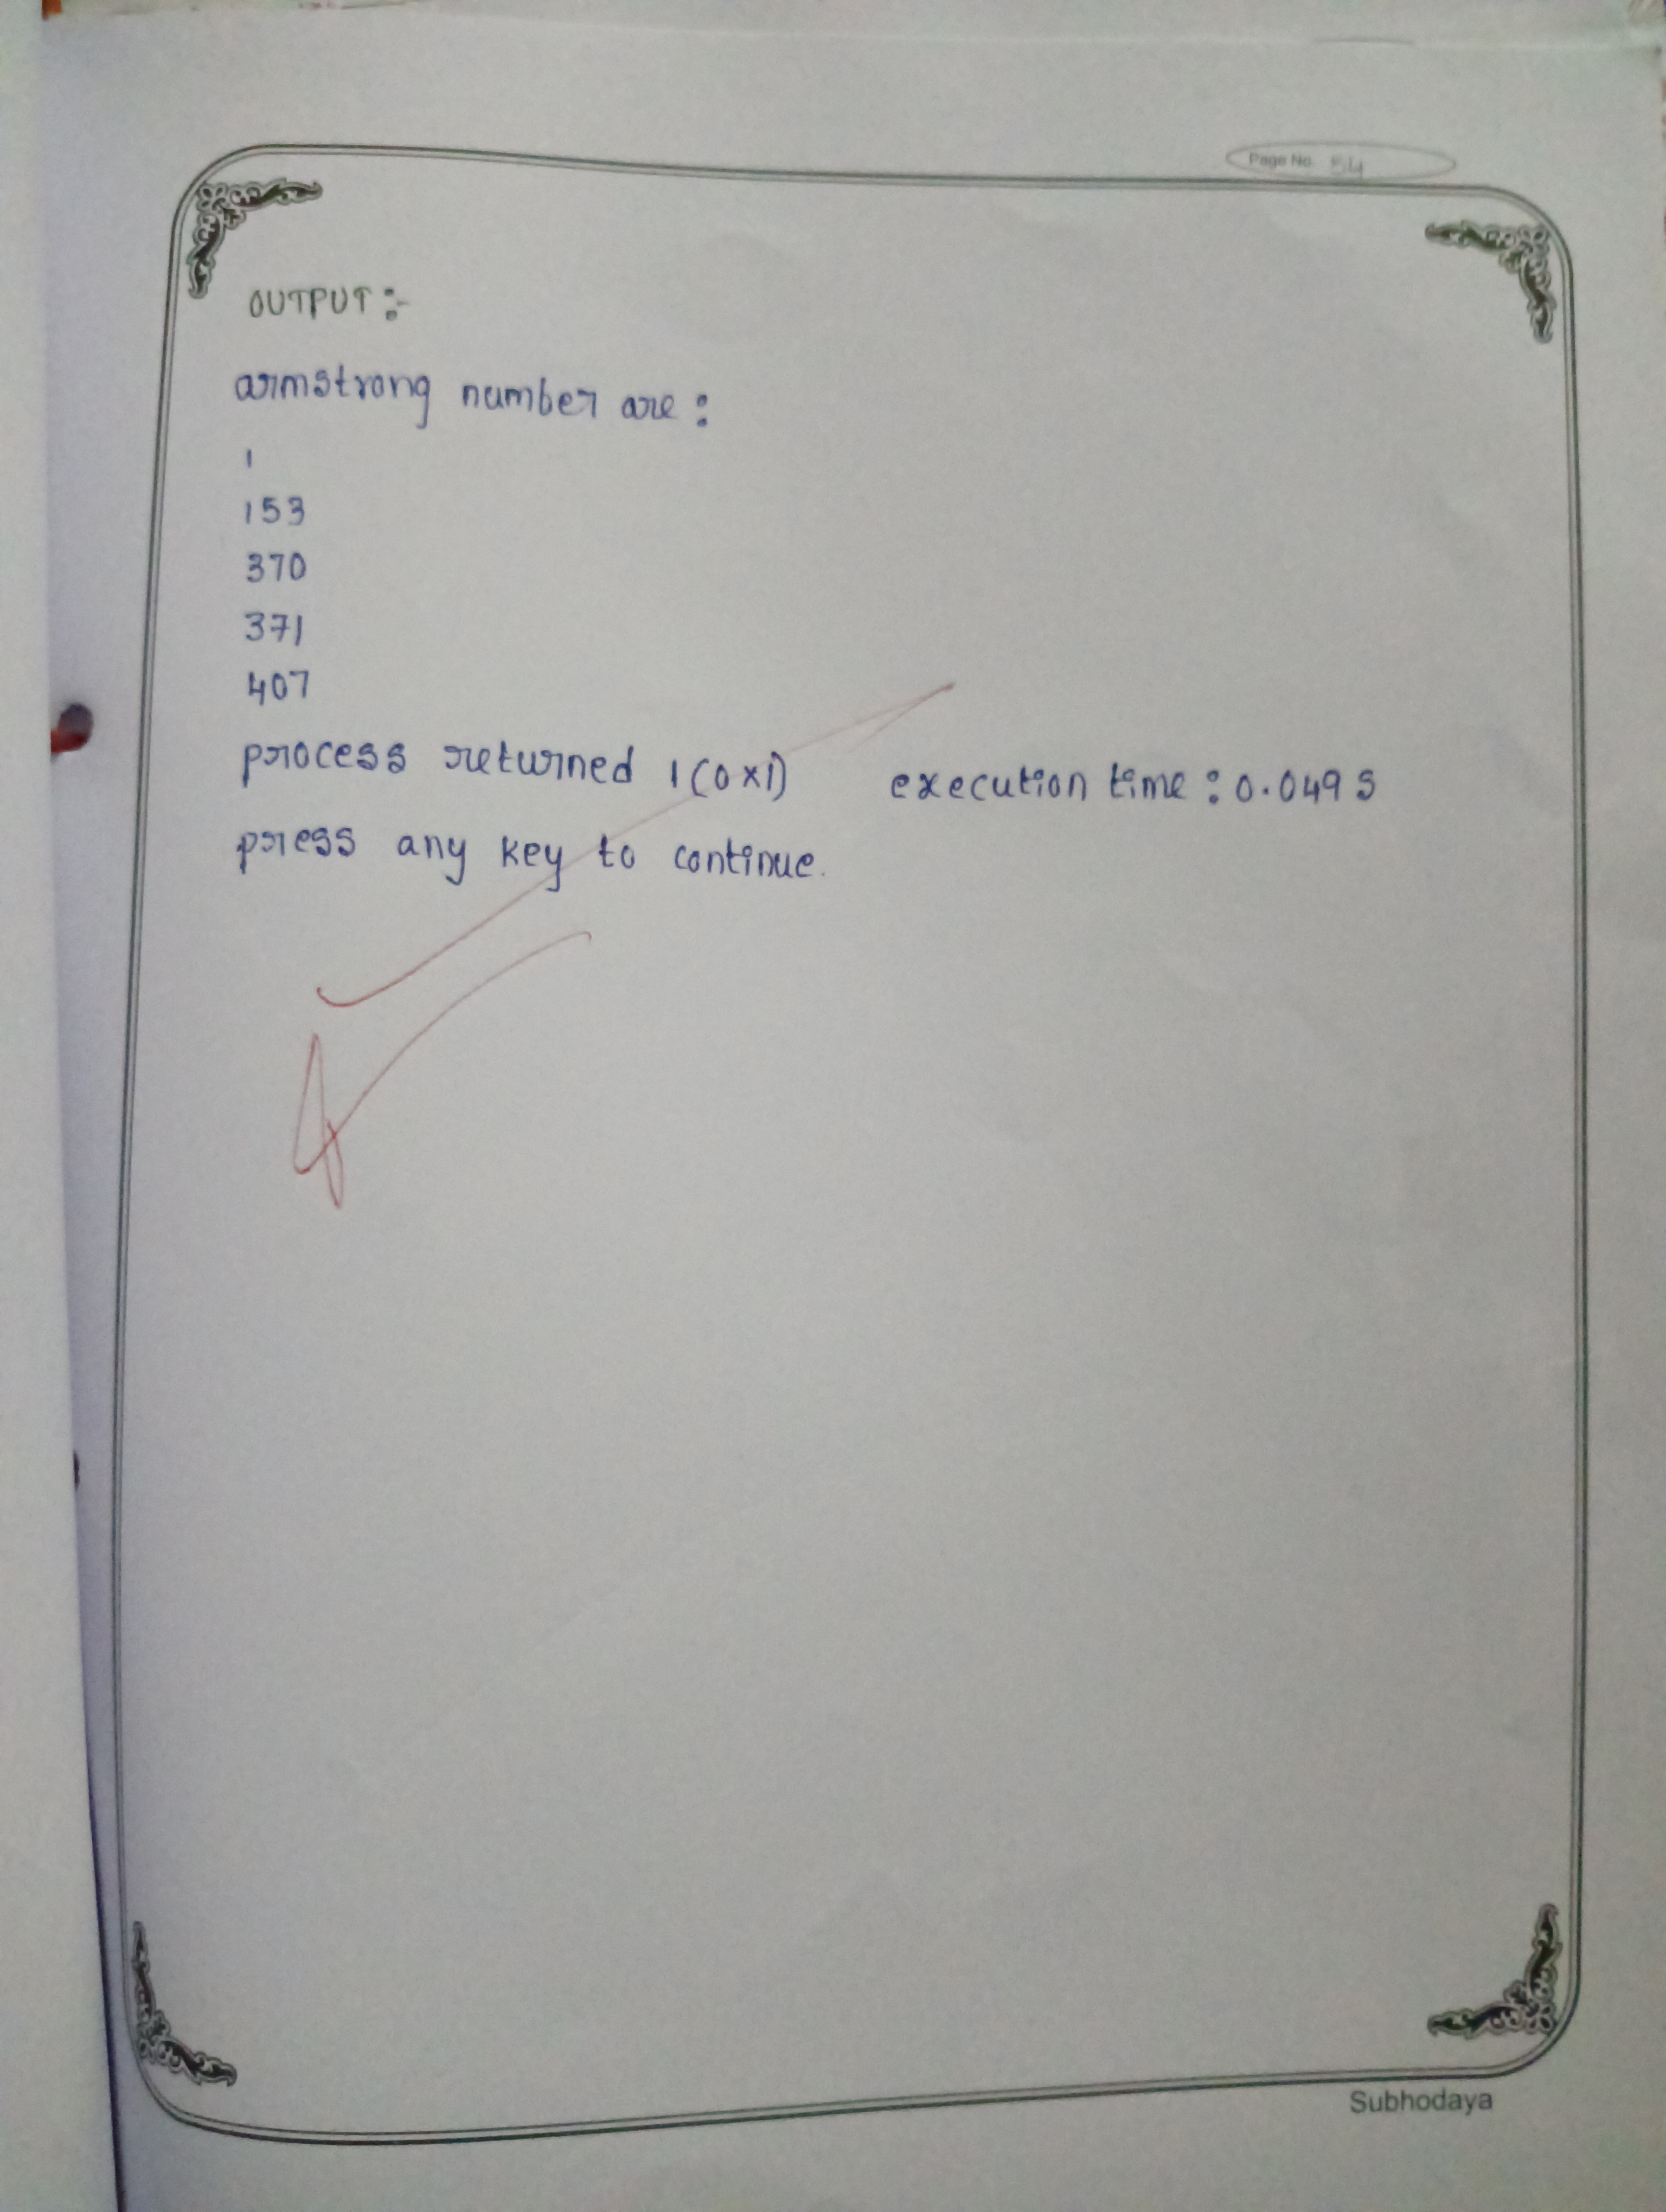 Page No. 54
OUTPUT :-
armstrong number are :
1
153
370
371
407
process returned 1 (0x1) execution time : 0.049 s
press any key to continue.
Subhodaya